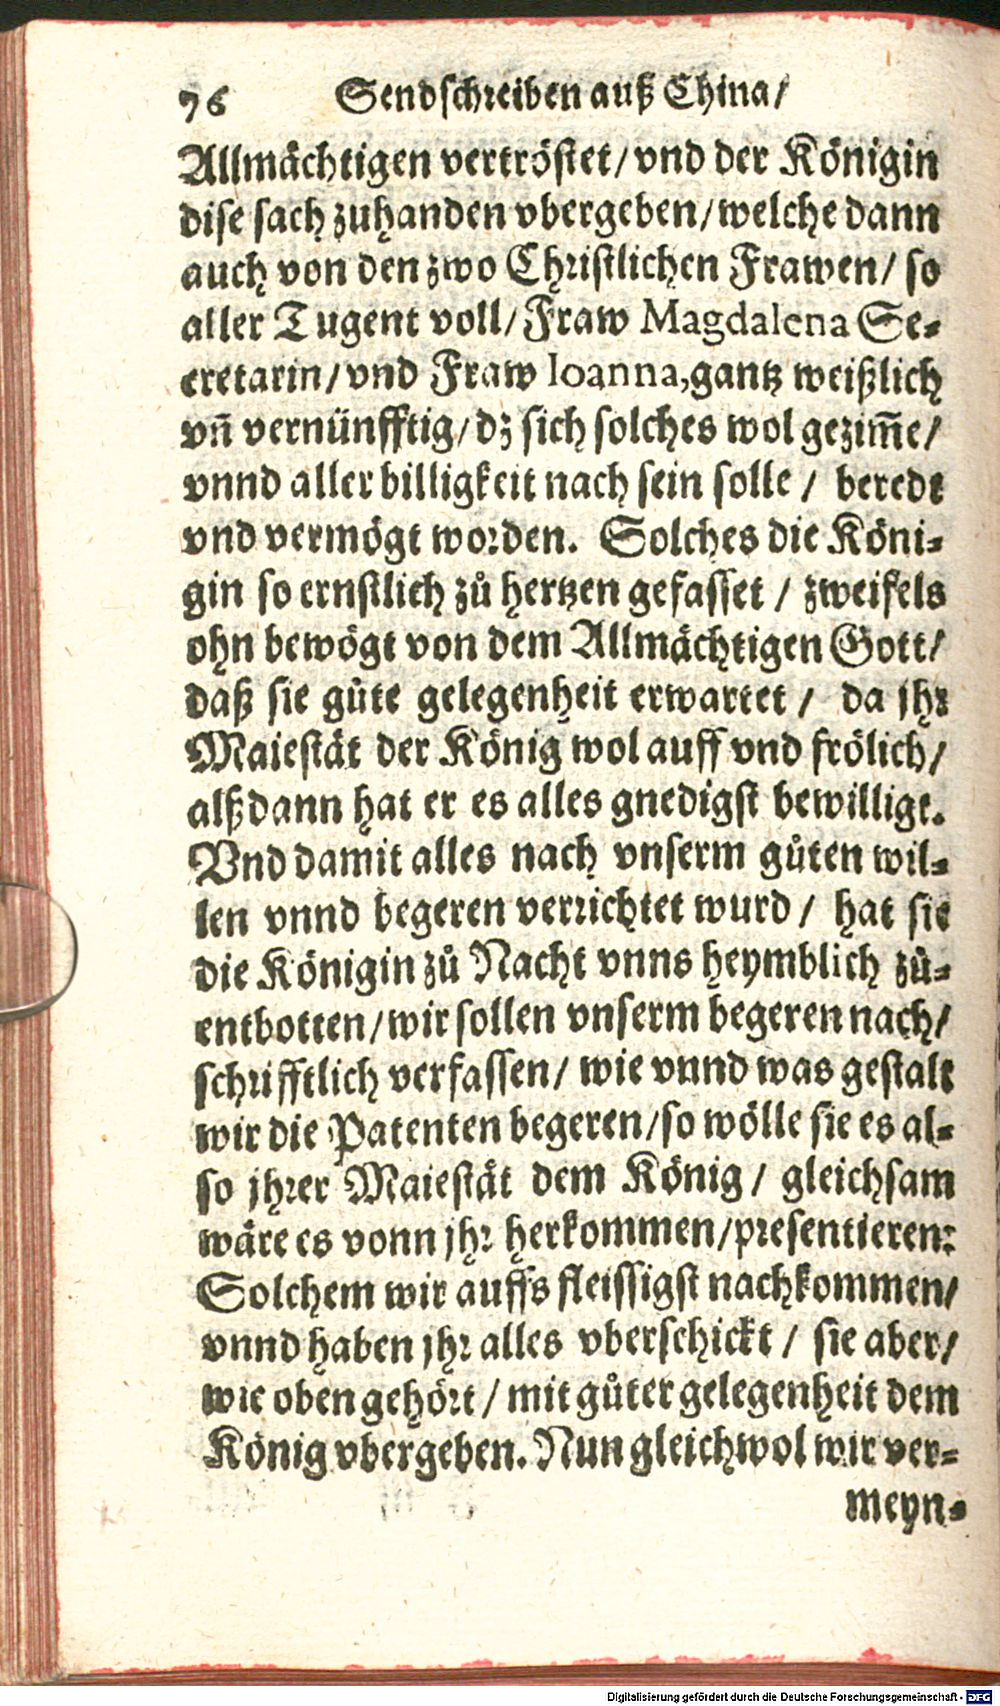 76 Sendschreiben auß China/
Allmächtigen vertröstet/ vnd der Königin
dise sach zuhanden vbergeben/ welche dann
auch von den zwo Christlichen Frawen/ so
aller Tugent voll/ Fraw Magdalena Se-
cretarin/ vnd Fraw Ioanna, gantz weißlich
vñ vernünfftig/ dz sich solches wol gezim̃e/
vnnd aller billigkeit nach sein solle/ beredt
vnd vermögt worden. Solches die Köni-
gin so ernstlich zů hertzen gefasset/ zweifels
ohn bewögt von dem Allmächtigen Gott/
daß sie gůte gelegenheit erwartet/ da jhr
Maiestät der König wol auff vnd frölich/
alßdann hat er es alles gnedigst bewilligt.
Vnd damit alles nach vnserm gůten wil-
len vnnd begeren verrichtet wurd/ hat sie
die Königin zů Nacht vnns heymblich zů-
entbotten/ wir sollen vnserm begeren nach/
schrifftlich verfassen/ wie vnnd was gestalt
wir die Patenten begeren/ so wölle sie es al-
so jhrer Maiestät dem König/ gleichsam
wäre es vonn jhr herkommen/ presentieren:
Solchem wir auffs fleissigst nachkommen/
vnnd haben jhr alles vberschickt/ sie aber/
wie oben gehört/ mit gůter gelegenheit dem
König vbergeben. Nun gleichwol wir ver-
meyn-
Digitalisierung gefördert durch die Deutsche Forschungsgemeinschaft - DFG